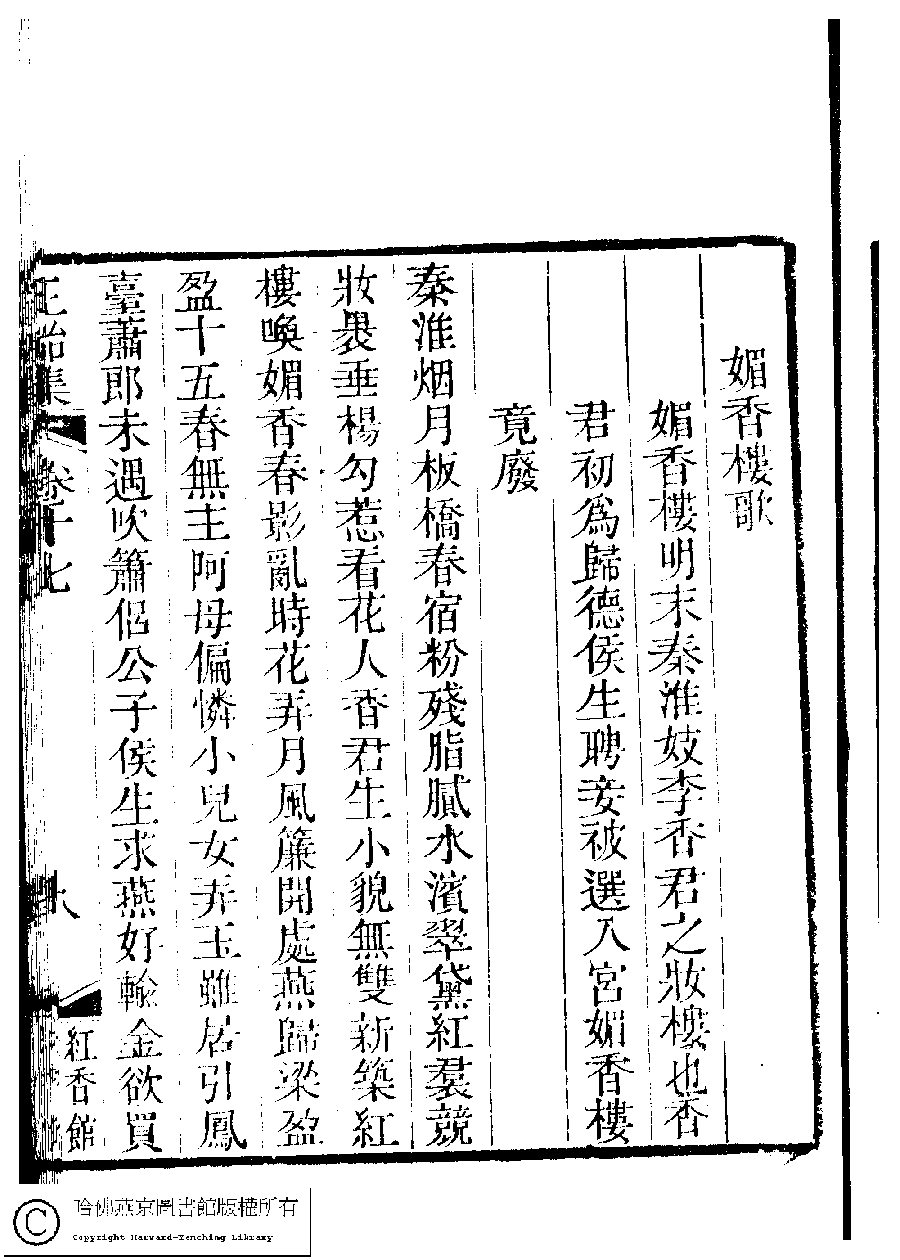 媚香樓歌
媚香樓明末秦淮妓李香君之妝樓也香
君初爲歸德侯生聘妾被選入宮媚香樓
竟廢
秦淮烟月板橋春宿粉殘脂膩水濱翠黛紅裠競
妝褁垂楊勾惹看花人香君生小貌無雙新築紅
樓喚媚香春影亂時花弄月風簾開處燕歸梁盈
盈十五春無主阿母偏憐小兒女弄玉雖居引鳳
臺蕭郎未遇吹簫侶公子侯生求燕好輸金欲買
卷十七
紅香館
哈佛燕京圖書館版權所有
Copyright Harvard-Yenching Library